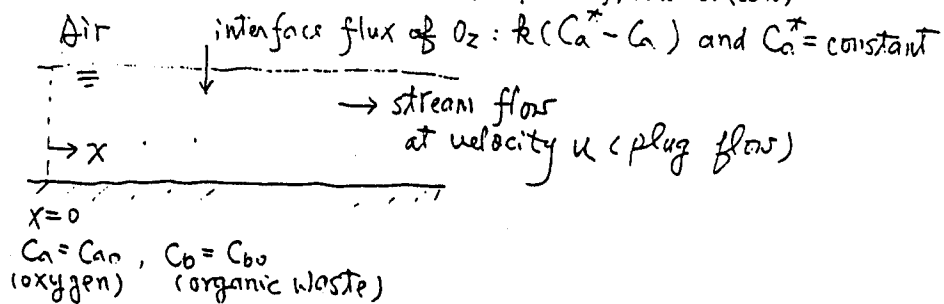 Air interface flux of O₂ : k(Ca* - Ca) and Ca* = constant
→ stream flow
at velocity u (plug flow)
→ x
x=0
Ca = Cao , Cb = Cbo
(oxygen) (organic waste)